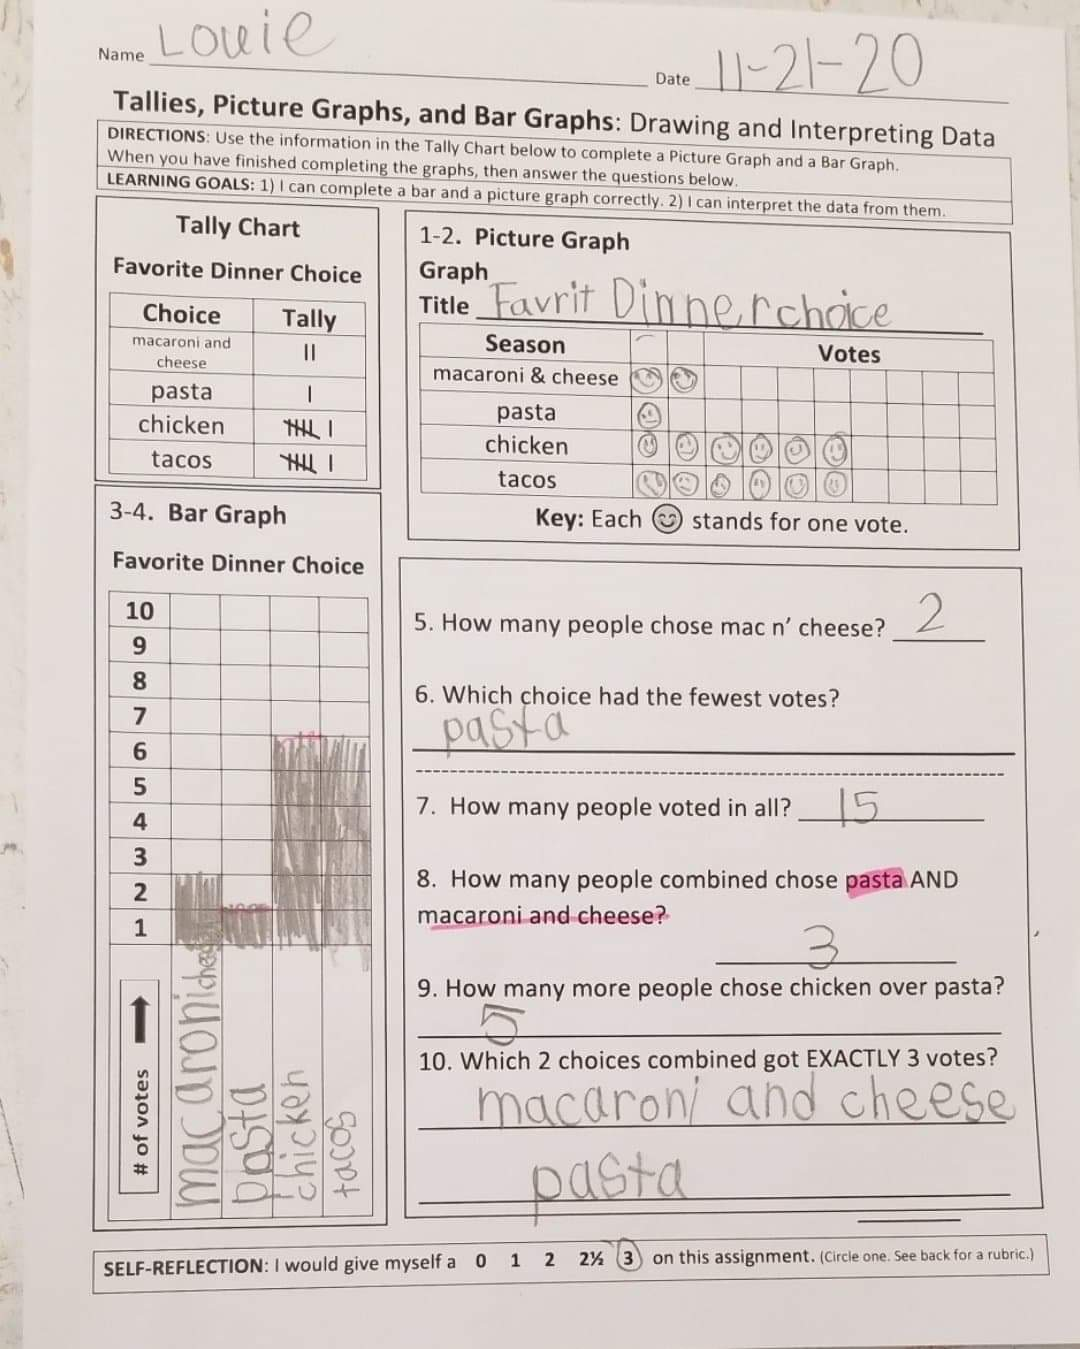 Name Louie
Date 11-21-20
Tallies, Picture Graphs, and Bar Graphs: Drawing and Interpreting Data
DIRECTIONS: Use the information in the Tally Chart below to complete a Picture Graph and a Bar Graph.
When you have finished completing the graphs, then answer the questions below.
LEARNING GOALS: 1) I can complete a bar and a picture graph correctly. 2) I can interpret the data from them.
Tally Chart
Favorite Dinner Choice
Choice Tally
macaroni and
cheese
pasta
chicken
tacos
1-2. Picture Graph
Graph
Title Favrit Dinner choice
Season Votes
macaroni & cheese
pasta
chicken
tacos
Key: Each stands for one vote.
3-4. Bar Graph
Favorite Dinner Choice
10
9
8
7
6
5
4
3
2
1
# of votes
macaroni chees
pasta
chicken
tacos
5. How many people chose mac n' cheese? 2
6. Which choice had the fewest votes?
pasta
7. How many people voted in all? 15
8. How many people combined chose pasta AND
macaroni and cheese?
3
9. How many more people chose chicken over pasta?
5
10. Which 2 choices combined got EXACTLY 3 votes?
macaroni and cheese
pasta
SELF-REFLECTION: I would give myself a 0 1 2 2½ 3 on this assignment. (Circle one. See back for a rubric.)